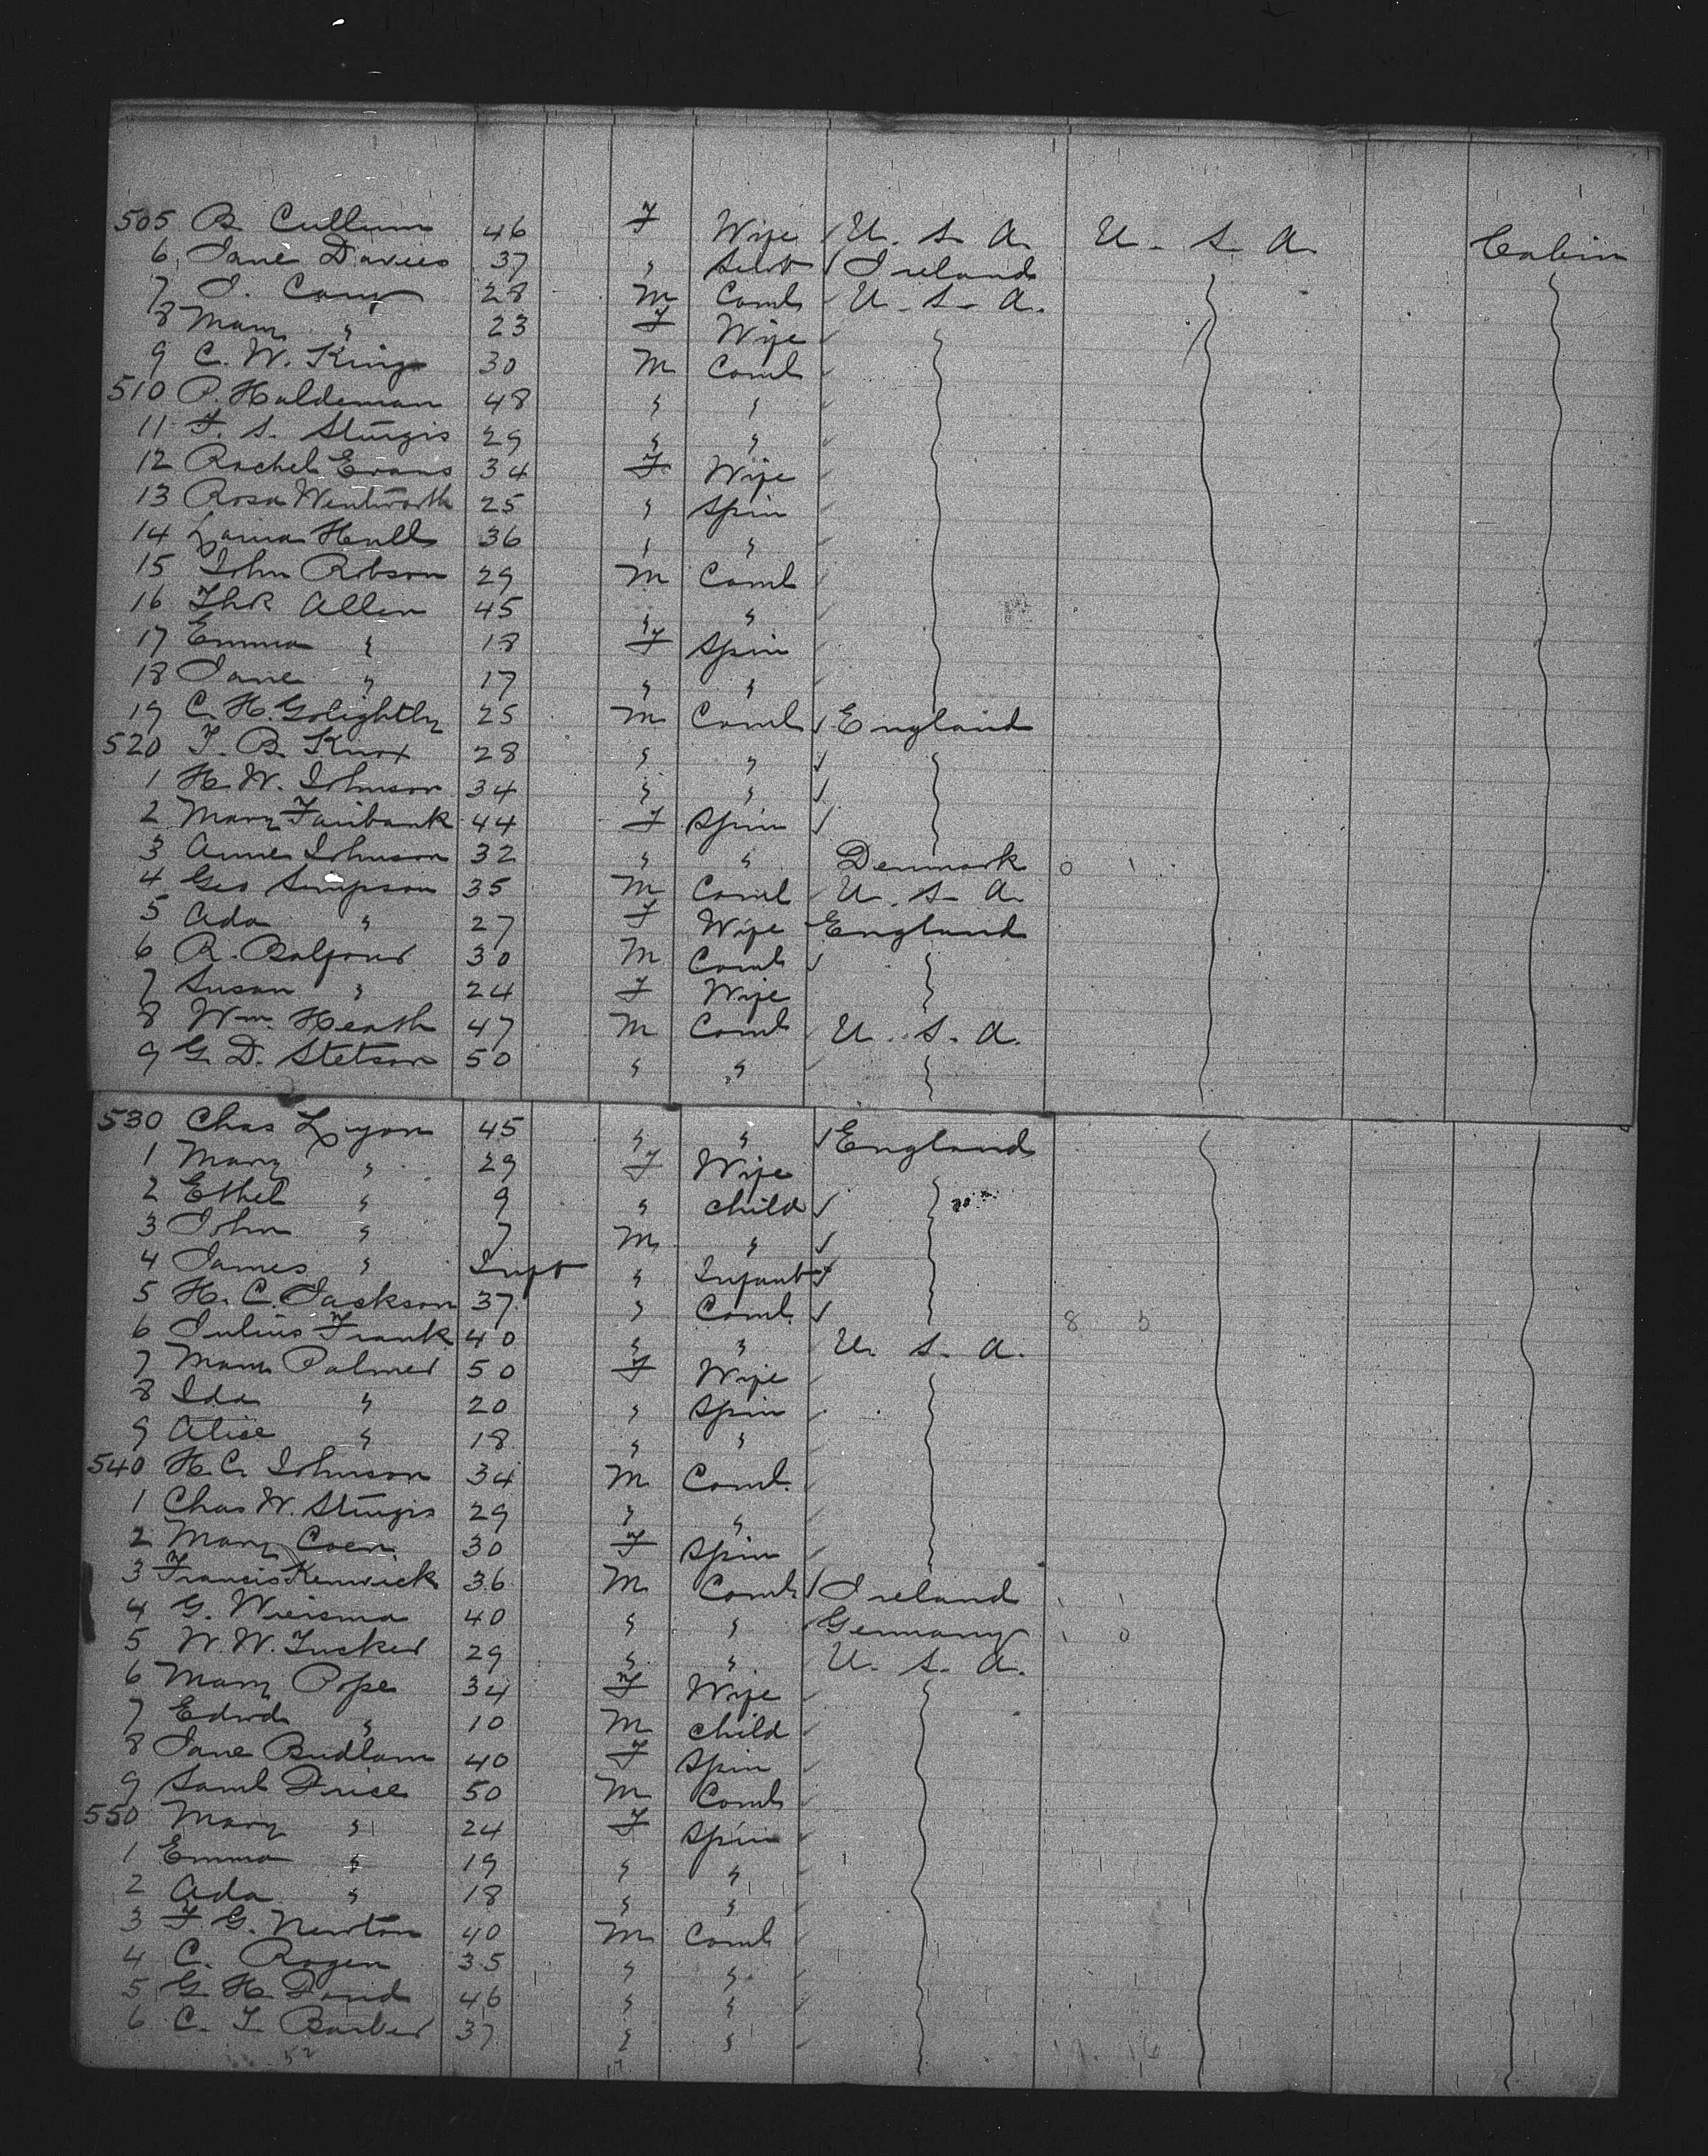 505 B Cullum 46 F Wife ✓ U. S. A. U. S. A. Cabin
6 Jane Davies 37 " Servt ✓ Ireland
7 J. Cary 28 M Coml U. S. A.
8 Mary " 23 F Wife
9 C. W. King 30 M Coml
510 P. Haldeman 48 " "
11 F. S. Sturgis 29 " "
12 Rachel Evans 34 F Wife
13 Rosa Wentworth 25 " Spin
14 Hull 36 " "
15 John Robson 29 M Coml
16 Allen 45 " "
17 Emma " 18 F Spin
18 Jane " 17 " "
19 C. H. Golightly 25 M Coml ✓ England
520 T. B Knox 28 " " ✓
1 H. W. Johnson 34 " " ✓
2 Mary Fairbank 44 F Spin ✓
3 Anne Johnson 32 " " Denmark 0 1
4 Geo Simpson 35 M Coml U. S. A.
5 Ada " 27 F Wife England
6 R. Balfour 30 M Coml ✓
7 Susan " 24 F Wife
8 Wm. Heath 47 M Coml U. S. A.
9 G. D. Stetson 50 " "
530 Chas Lyon 45 " " ✓ England
1 Mary " 29 F Wife
2 Ethel " 9 " child ✓
3 John " 7 M " ✓
4 James " Inft " Infant ✓
5 H. C. Jackson 37 " Coml ✓ 8 5
6 Julius Frank 40 " " U. S. A.
7 Mary Palmer 50 F Wife
8 Ida " 20 " Spin
9 Alice " 18 " "
540 H. C. Johnson 34 M Coml.
1 Chas W. Sturgis 29 " "
2 Mary Coen 30 F Spin
3 Francis Kenwick 36 M Coml ✓ Ireland 1 1
4 G. Wiesma 40 " " Germany 1 0
5 W. W. Tucker 29 " " U. S. A.
6 Mary Pope 34 F Wife
7 Edwd " 10 M child
8 Jane Budlam 40 F Spin
9 Saml Price 50 M Coml
550 Mary " 24 F Spin
1 Emma " 19 " "
2 Ada " 18 " "
3 F. G. Newton 40 M Coml
4 C. Rogen 35 " "
5 G H 46 " "
6 C. L. Barber 37 " "
52 17